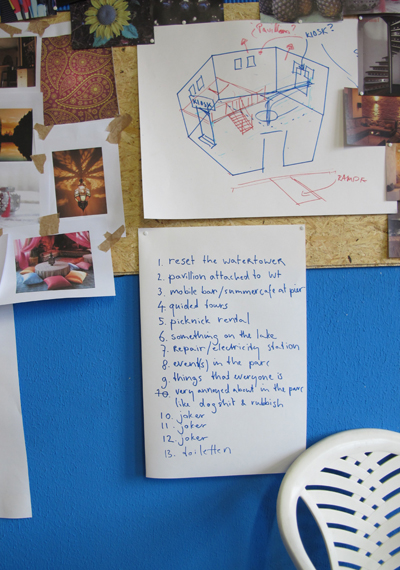 ¿Pavilion?
KIOSK?
KIOSK
1. reset the watertower
2. pavillion attached to WT
3. mobile bar/summercafe at pier
4. guided tours
5. picknick rental
6. something on the lake
7. Repair/electricity station
8. event(s) in the parc
9. things that everyone is
10. very annoyed about in the parc
like dogshit & rubbish
10. joker
11. joker
12. joker
13. toiletten